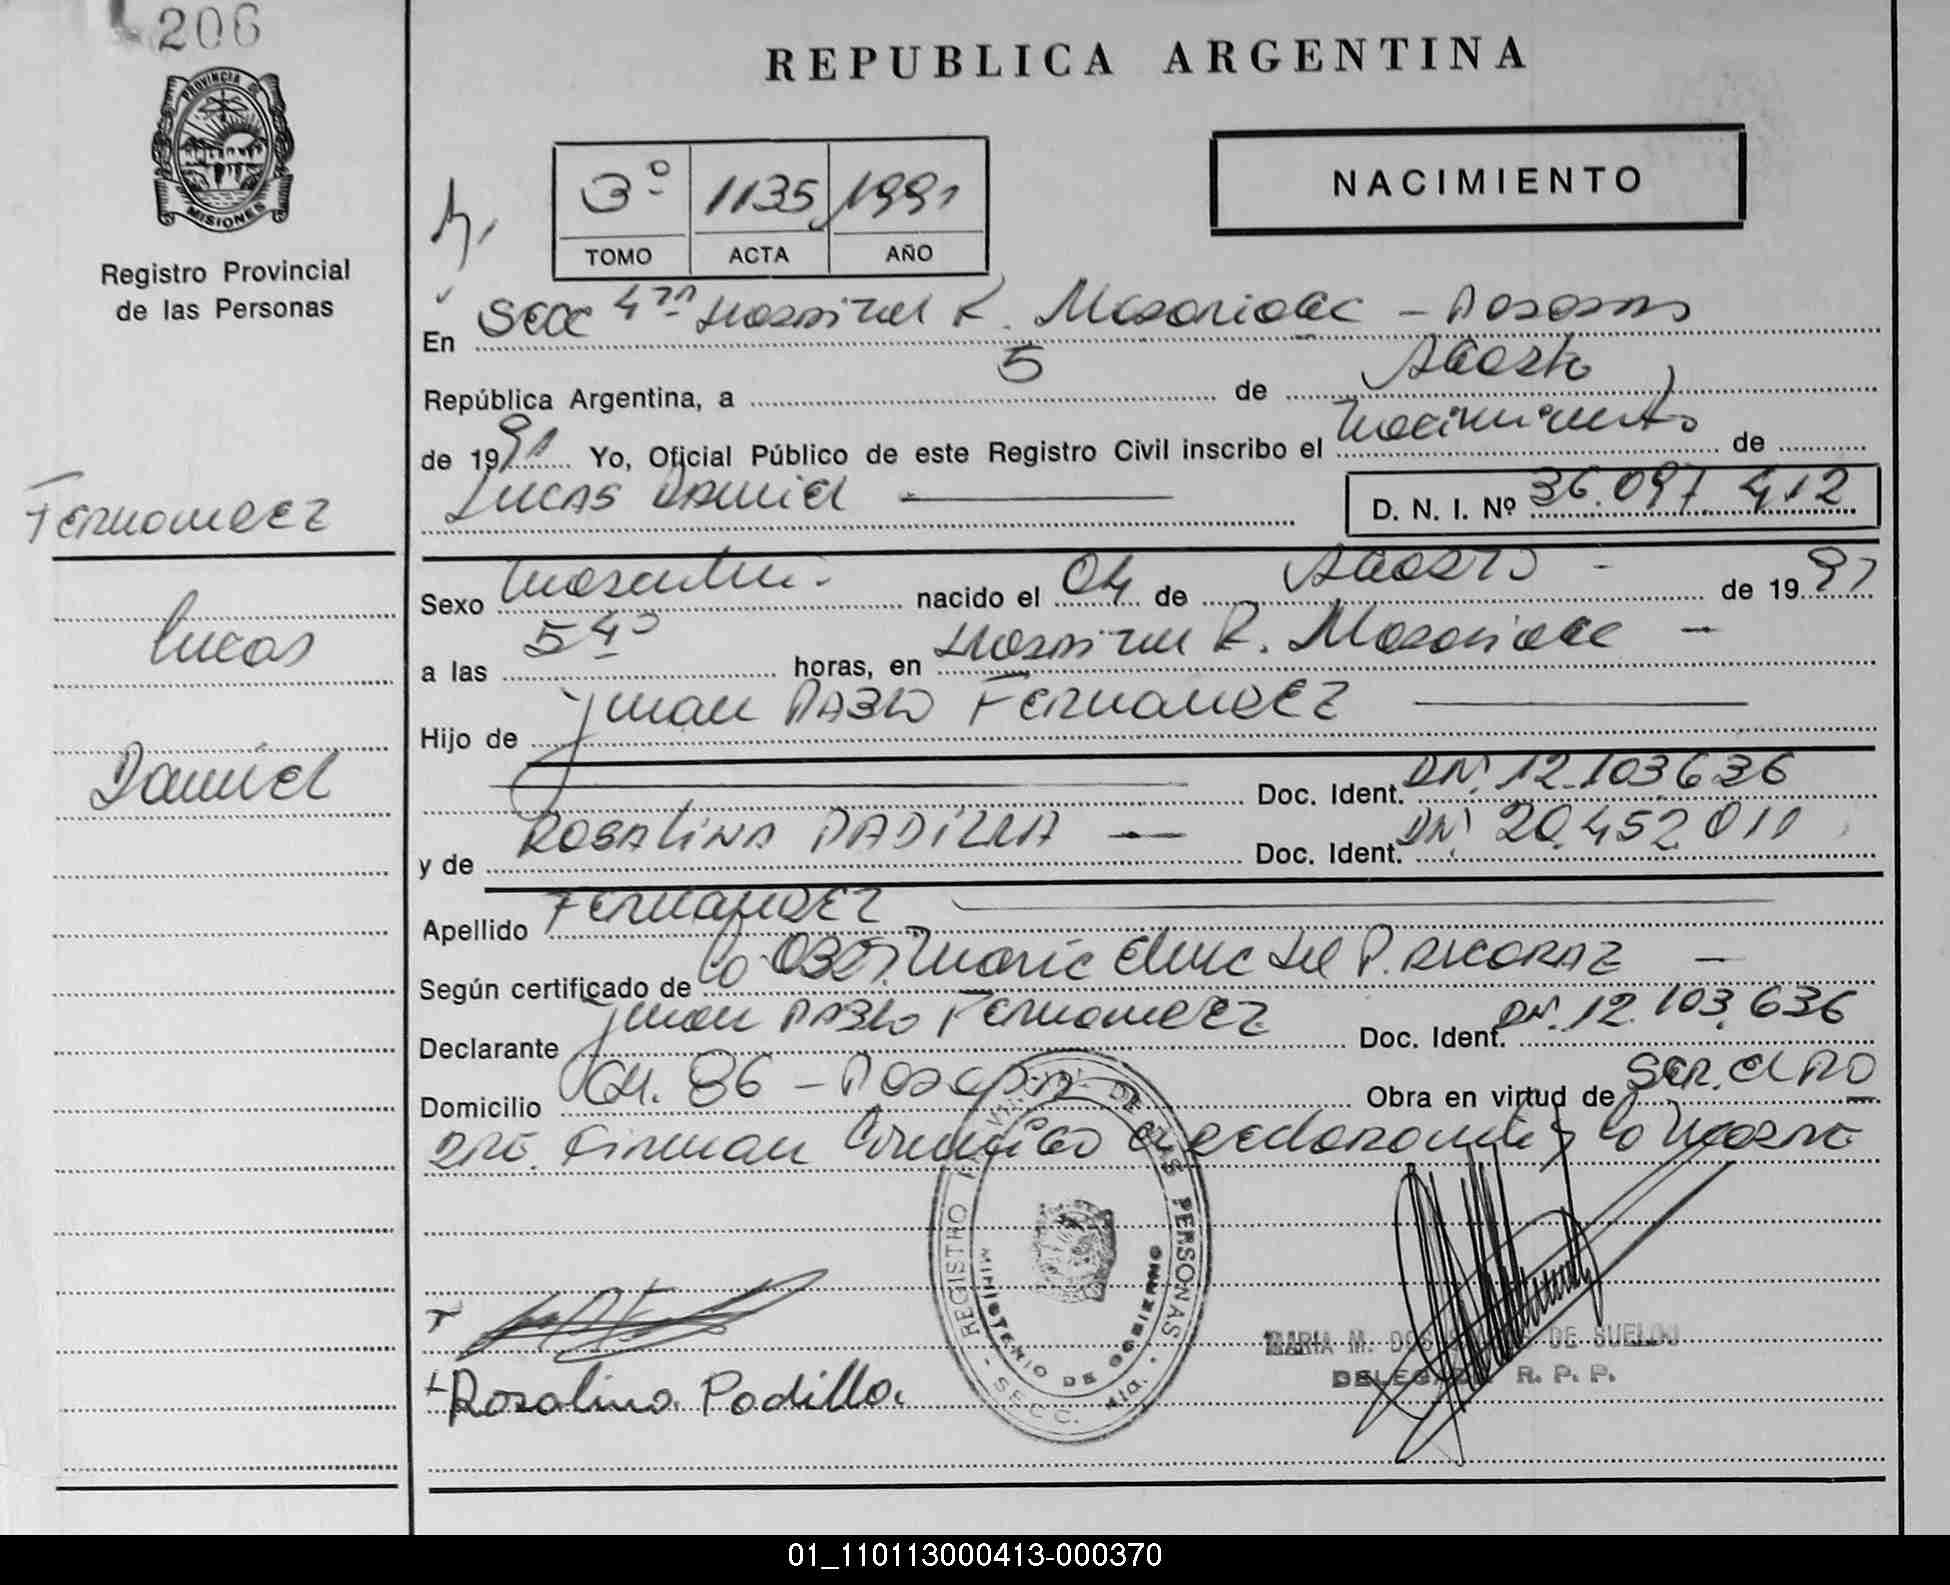 206
PROVINCIA DE
MISIONES
Registro Provincial
de las Personas
REPUBLICA ARGENTINA
3º 1135 1991
TOMO ACTA AÑO
NACIMIENTO
En Secc 4ta Hospital R. Madariaga - Posadas
República Argentina, a 5 de Agosto
de 1991 Yo, Oficial Público de este Registro Civil inscribo el nacimiento de
Lucas Daniel
D. N. I. Nº 36.097.412
Fernandez
Lucas
Daniel
Sexo Masculino nacido el 04 de Agosto de 1991
a las 5 40 horas, en Hospital R. Madariaga
Hijo de Juan Pablo Fernandez
Doc. Ident. DNI. 12.103.636
y de Rosalina Padilla Doc. Ident. DNI 20.452.011
Apellido Fernandez
Según certificado de la Obst. Maria del P. Alcaraz
Declarante Juan Pablo Fernandez Doc. Ident. DNI. 12.103.636
Domicilio Ch. 86 - Posadas Obra en virtud de ser el Pa
dre. Firman conmigo el declarante y la Madre
REGISTRO DE LAS PERSONAS
MINISTERIO DE GOBIERNO
SECC. 4ta.
MARIA M. DE SUELDO
DELEGADA R. P. P.
Rosalina Padilla
01_110113000413-000370